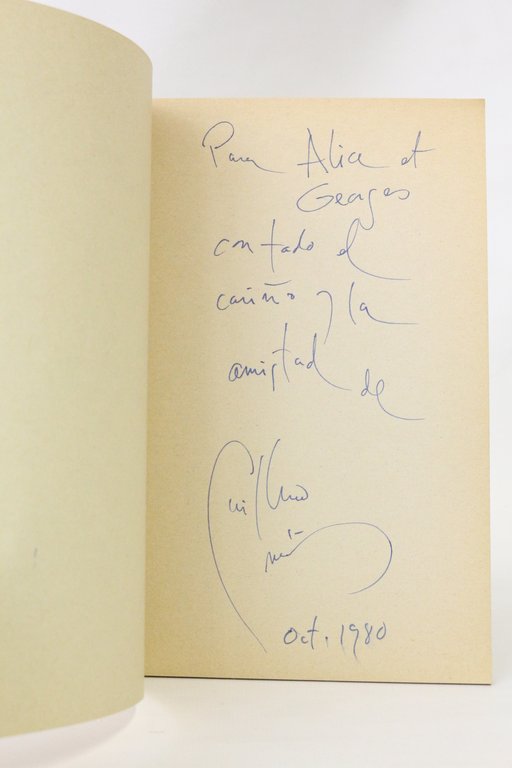 Para Alice et
Georges
con todo el
cariño y la
amistad de
Oct. 1980